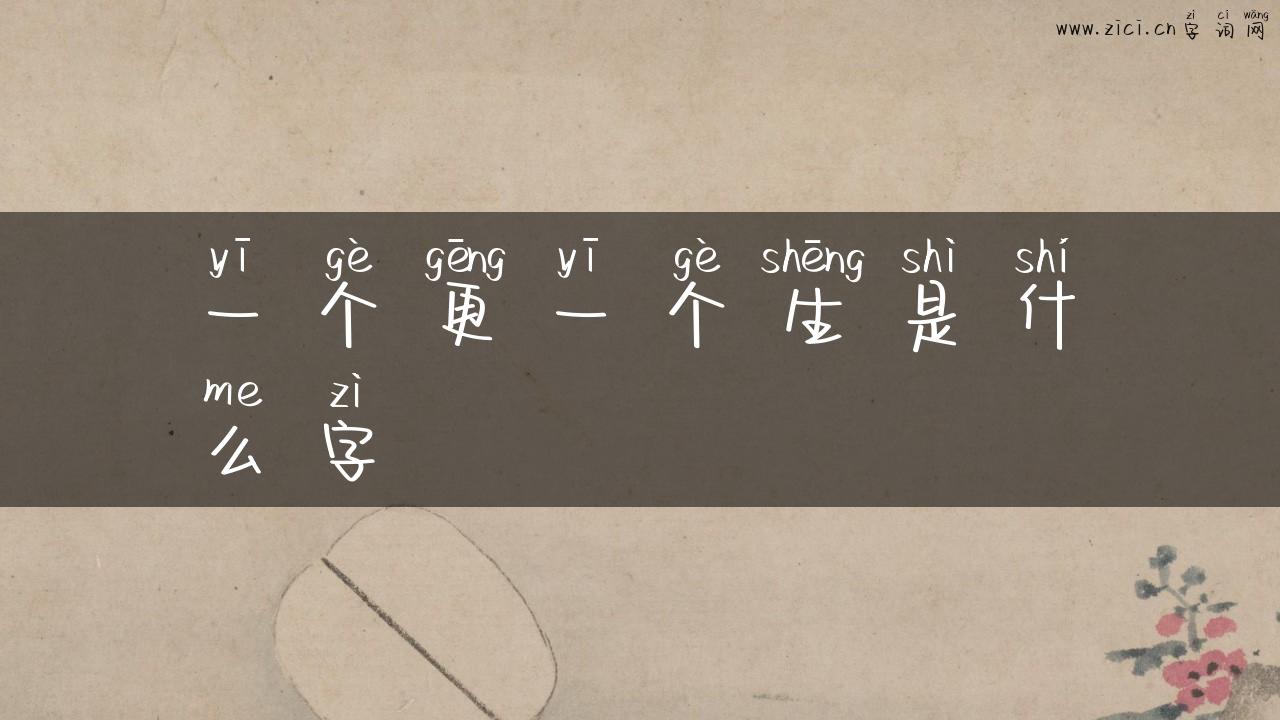 zì cí wǎng
www.zici.cn 字 词 网
yī gè gēng yī gè shēng shì shí
一 个 更 一 个 生 是 什
me zì
么 字